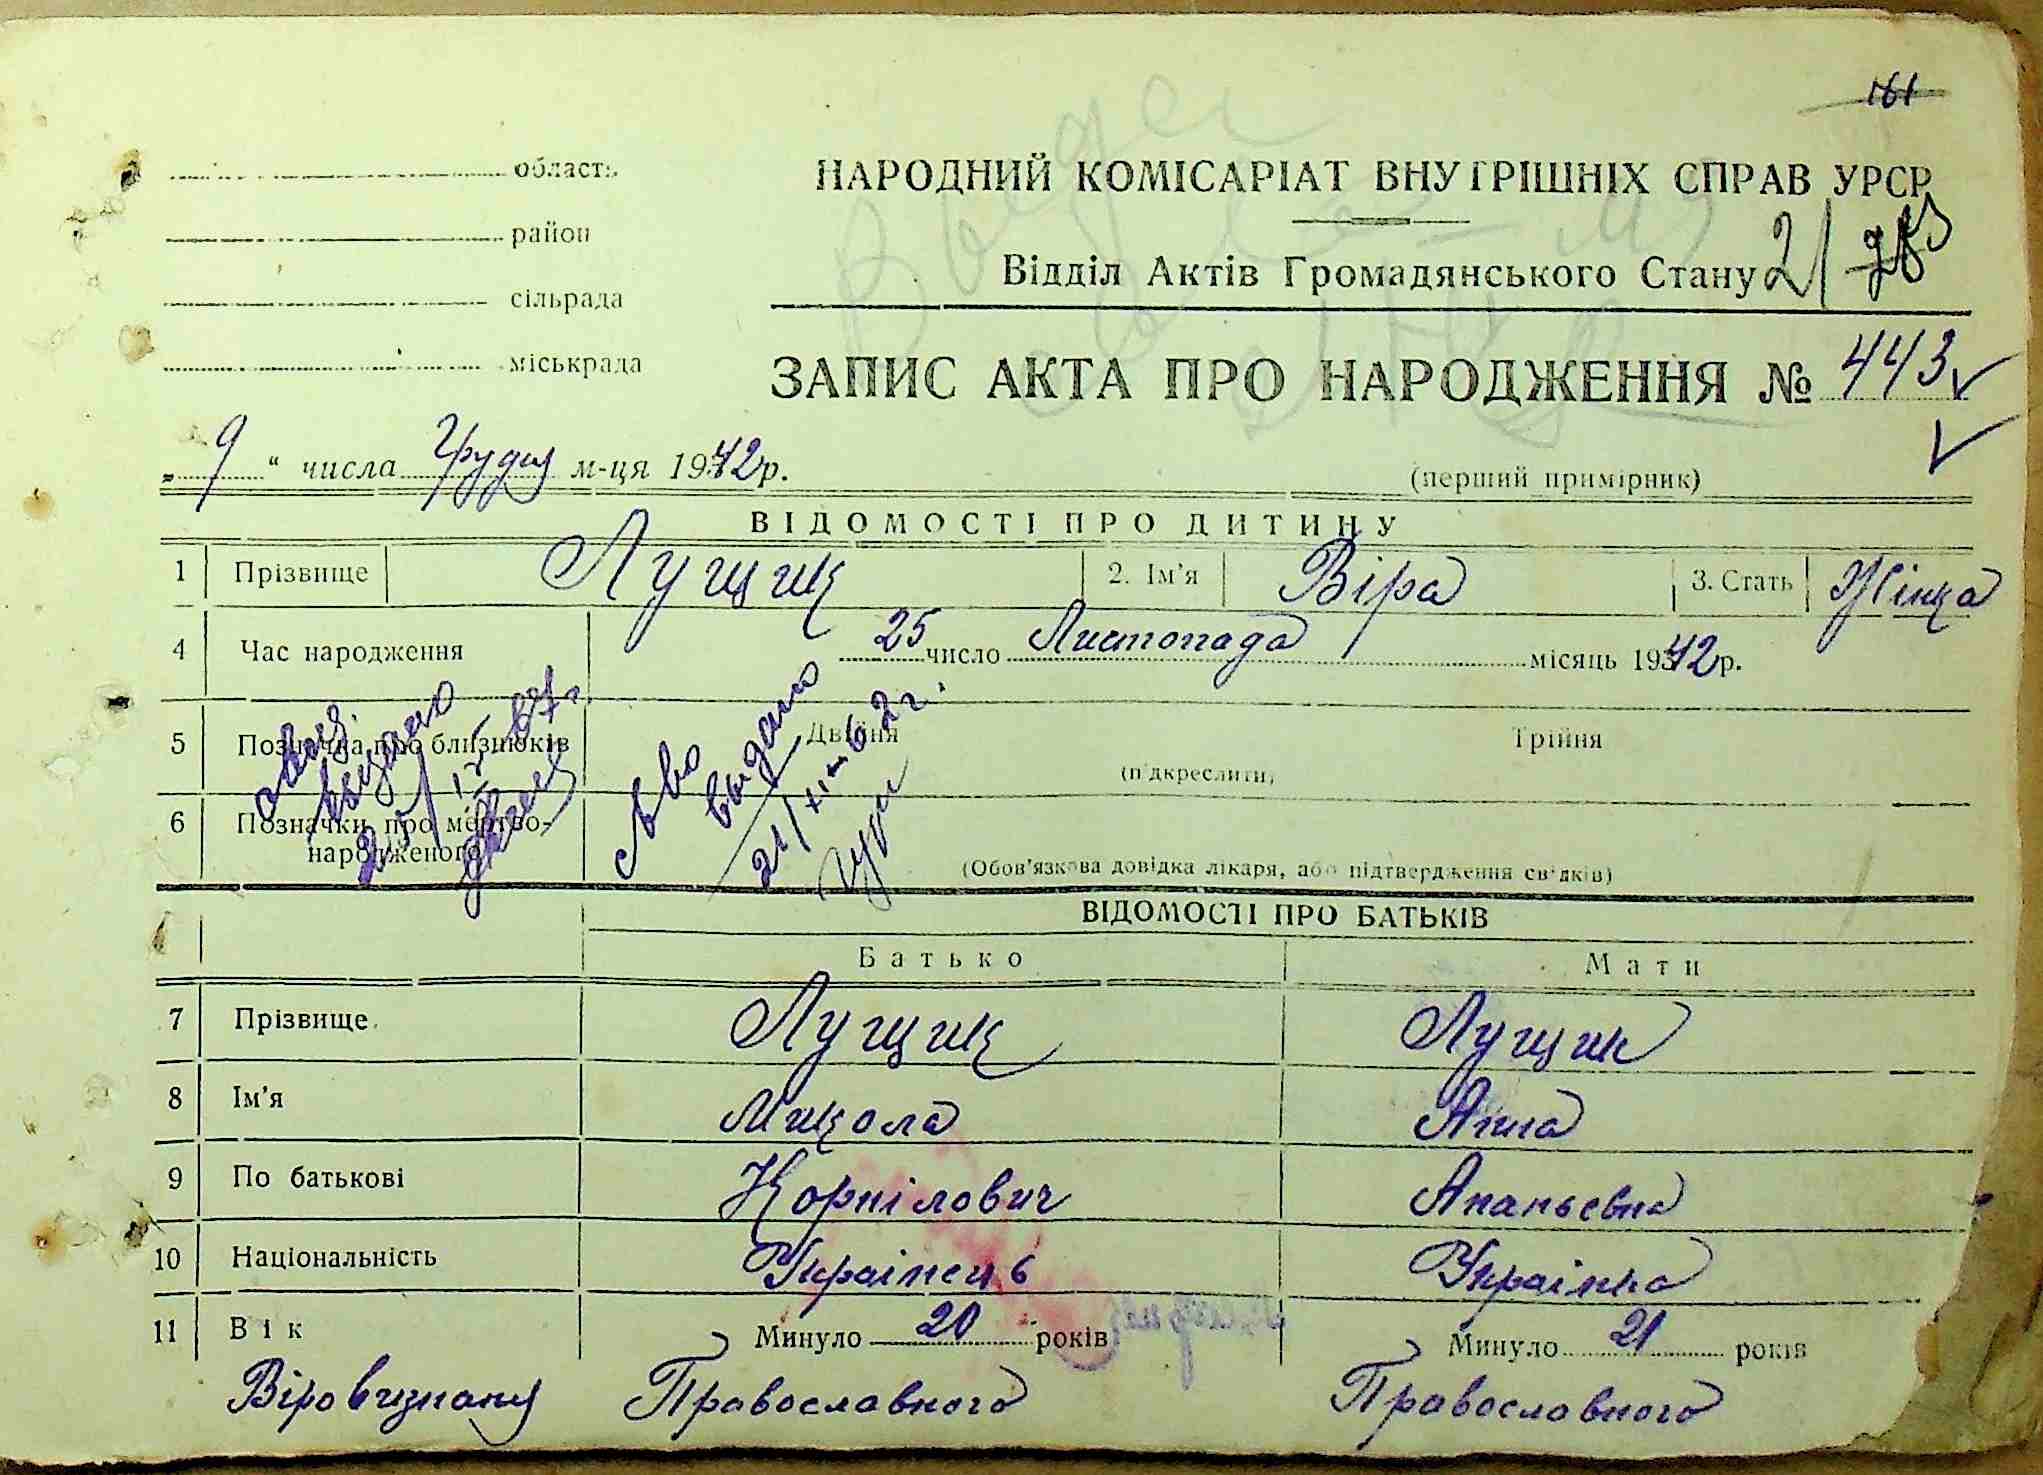 161
область
НАРОДНИЙ КОМІСАРІАТ ВНУТРІШНІХ СПРАВ УРСР
район
Відділ Актів Громадянського Стану 21
сільрада
міськрада
ЗАПИС АКТА ПРО НАРОДЖЕННЯ № 443
„ 9 “ числа Грудня м-ця 1942 р.
(перший примірник)
ВІДОМОСТІ ПРО ДИТИНУ
1 Прізвище Лущик 2. Ім'я Віра 3. Стать Жінка
4 Час народження 25 число Листопада місяць 1942 р.
5 Позначка про близнюків Двійня Трійня
(підкреслити)
6 Позначки про мертво-
народженого
(Обов'язкова довідка лікаря, або підтвердження свідків)
видано
выдано
21/XII-62 г.
ВІДОМОСТІ ПРО БАТЬКІВ
Батько Мати
7 Прізвище Лущик Лущик
8 Ім'я Микола Анна
9 По батькові Корнілович Ананьевна
10 Національність Українець Українка
11 Вік Минуло 20 років Минуло 21 років
Віровизнання Православного Православного